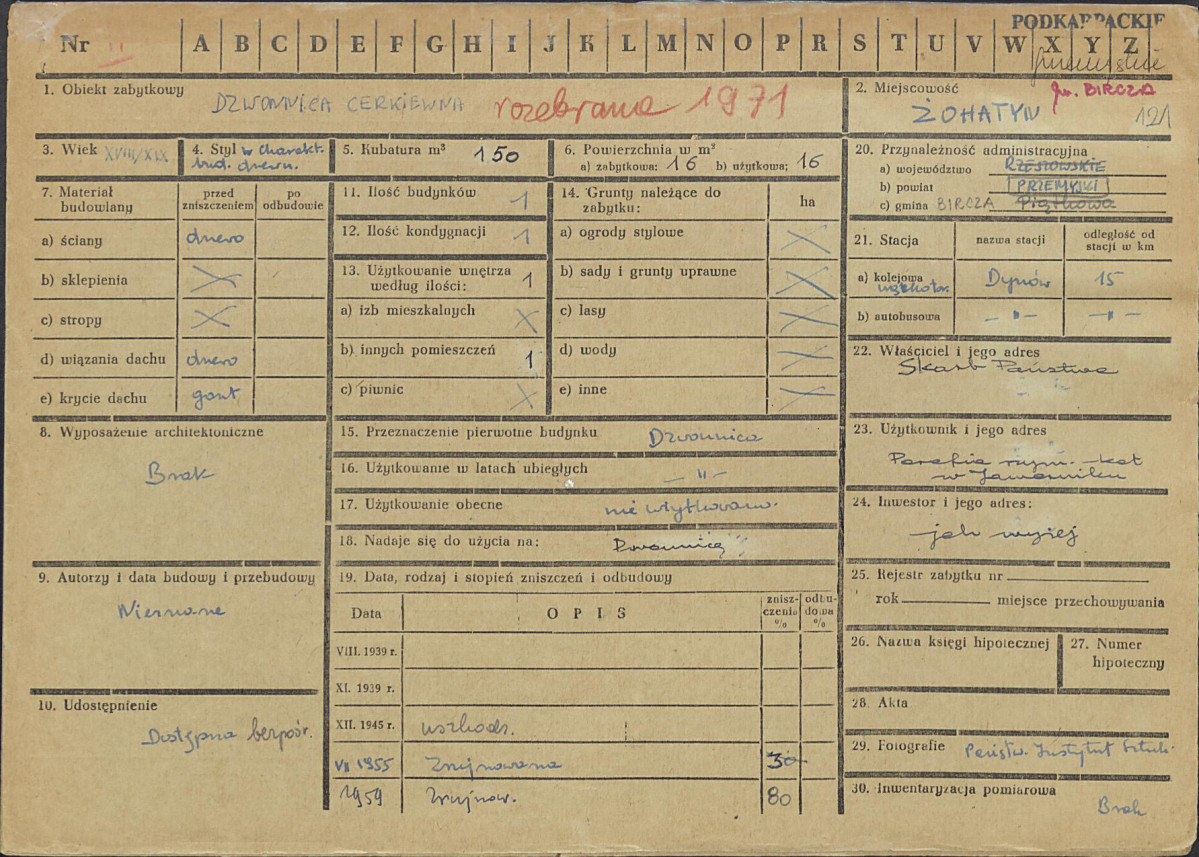 PODKARPACKIE
Nr II A B C D E F G H I J K L M N O P R S T U V W X Y Z
przemyskie
1. Obiekt zabytkowy
DZWONNICA CERKIEWNA rozebrana 1971
2. Miejscowość
gm. BIRCZA
ŻOHATYN 121
3. Wiek XVIII/XIX
4. Styl w charakt.
bud. drewn.
5. Kubatura m³ 150
6. Powierzchnia w m²
a) zabytkowa: 16 b) użytkowa: 16
7. Materiał budowlany
przed zniszczeniem
po odbudowie
a) ściany drewno
b) sklepienia
c) stropy
d) wiązania dachu drewno
e) krycie dachu gont
8. Wyposażenie architektoniczne
Brak
9. Autorzy i data budowy i przebudowy
Nieznane
10. Udostępnienie
Dostępna bezpośr.
11. Ilość budynków 1
12. Ilość kondygnacji 1
13. Użytkowanie wnętrza
według ilości: 1
a) izb mieszkalnych
b) innych pomieszczeń 1
c) piwnic
14. Grunty należące do
zabytku: ha
a) ogrody stylowe
b) sady i grunty uprawne
c) lasy
d) wody
e) inne
15. Przeznaczenie pierwotne budynku Dzwonnica
16. Użytkowanie w latach ubiegłych —"—
17. Użytkowanie obecne nie użytkowano.
18. Nadaje się do użycia na: Dzwonnicę
19. Data, rodzaj i stopień zniszczeń i odbudowy
Data OPIS znisz-czenia % odbu-dowa %
VIII. 1939 r.
XI. 1939 r.
XII. 1945 r. uszkodz.
VII 1955 Zrujnowana 30
1959 Zrujnow. 80
20. Przynależność administracyjna
a) województwo RZESZOWSKIE
b) powiat PRZEMYSKI
c) gmina BIRCZA Piątkowa
21. Stacja nazwa stacji odległość od stacji w km
a) kolejowa
wąskotor. Dynów 15
b) autobusowa —"— —"—
22. Właściciel i jego adres
Skarb Państwa
23. Użytkownik i jego adres
Parafia rzym.-kat
w Jaworniku
24. Inwestor i jego adres:
jak wyżej
25. Rejestr zabytku nr
rok miejsce przechowywania
26. Nazwa księgi hipotecznej
27. Numer
hipoteczny
28. Akta
29. Fotografie Państw. Instytut Sztuki
30. Inwentaryzacja pomiarowa
Brak